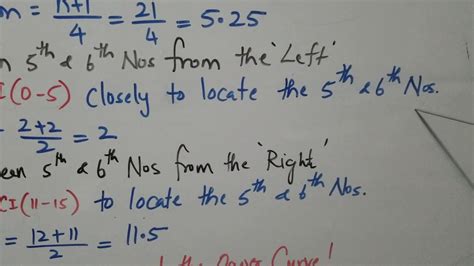 m = n+1/4 = 21/4 = 5.25
n 5th & 6th Nos from the 'Left'
I(0-5) Closely to locate the 5th & 6th Nos.
2+2/2 = 2
een 5th & 6th Nos from the 'Right'
CI(11-15) to locate the 5th & 6th Nos.
= 12+11/2 = 11.5
Curve!